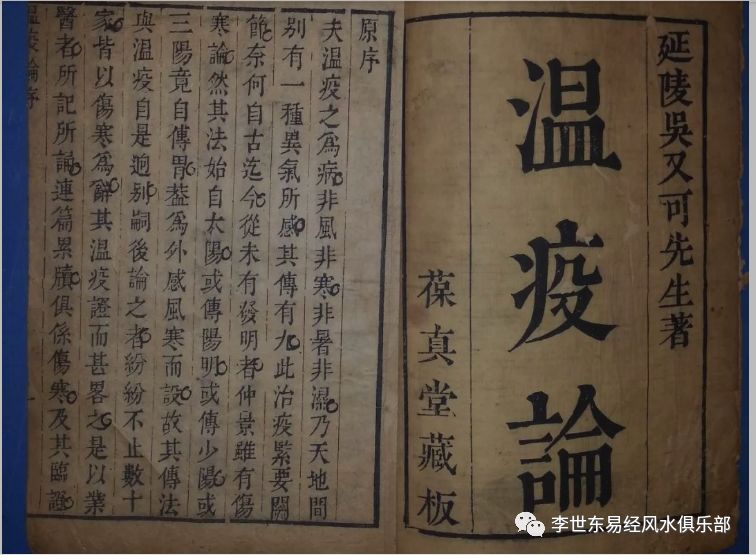 延陵吳又可先生著
温疫論
葆真堂藏板
原序
夫温疫之爲病非風非寒非暑非濕乃天地間
别有一種異氣所感其傳有九此治疫緊要關
節奈何自古迄今從未有發明者仲景雖有傷
寒論然其法始自太陽或傳陽明或傳少陽或
三陽竟自傳胃葢爲外感風寒而設故其傳法
與温疫自是逈别嗣後論之者紛紛不止數十
家皆以傷寒爲辭其温疫證而甚畧之是以業
醫者所記所誦連篇累牘俱係傷寒及其臨證
温疫論序
一
李世东易经风水俱乐部